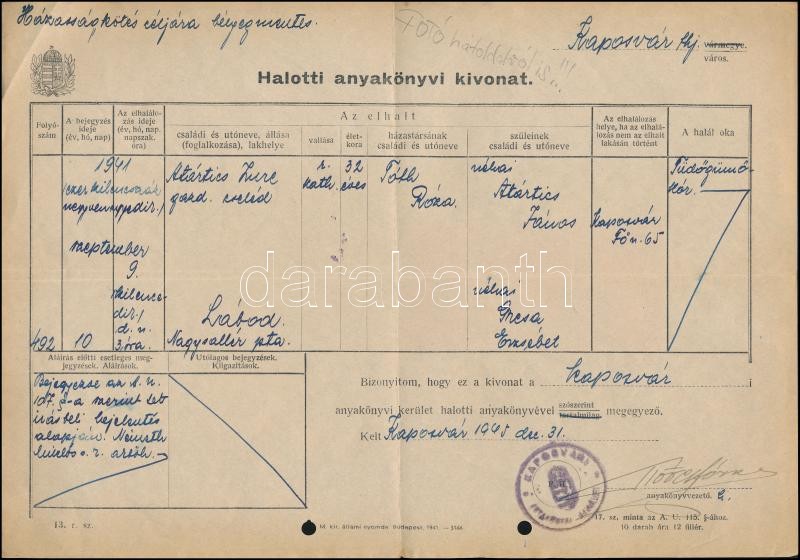 Házasságkötés céljára bélyegmentes.
FOTÓ hátoldalról is!!!
Kaposvár thj. vármegye.
város.
Halotti anyakönyvi kivonat.
Folyó-
szám
A bejegyzés
ideje
(év, hó, nap)
Az elhalálo-
zás ideje
(év, hó, nap,
napszak,
óra)
Az elhalt
családi és utóneve, állása
(foglalkozása), lakhelye
vallása
élet-
kora
házastársának
családi és utóneve
szüleinek
családi és utóneve
Az elhalálozás
helye, ha az elhalá-
lozás nem az elhalt
lakásán történt
A halál oka
1941
(ezerkilencszáz
negyvenegyedik)
szeptember
9.
10
kilence-
dik
d. n.
3. óra.
492
Atártics Imre
gazd. cseléd
Lábod.
Nagysallér pta.
r.
kath.
32
éves
Tóth
Róza
néhai
Atártics
János
néhai
Grcsa
Erzsébet
Kaposvár
Fő u. 65
Tüdőgümő-
kór.
Aláírás előtti esetleges meg-
jegyzések. Aláírások.
Utólagos bejegyzések.
Kiigazítások.
Bejegyezve az A. u.
107. §-a szerint
írásbeli bejelentés
alapján. Németh
s. k.
Bizonyítom, hogy ez a kivonat a Kaposvár i
anyakönyvi kerület halotti anyakönyvével szószerint tartalmilag megegyező.
Kelt Kaposvár 1945 dec. 31.
KAPOSVÁRI
P. H.
anyakönyvvezető
13. r. sz.
M. kir. állami nyomda. Budapest, 1941. — 3144
17. sz. minta az A. U. 115. §-ához.
10 darab ára 12 fillér.
darabanth